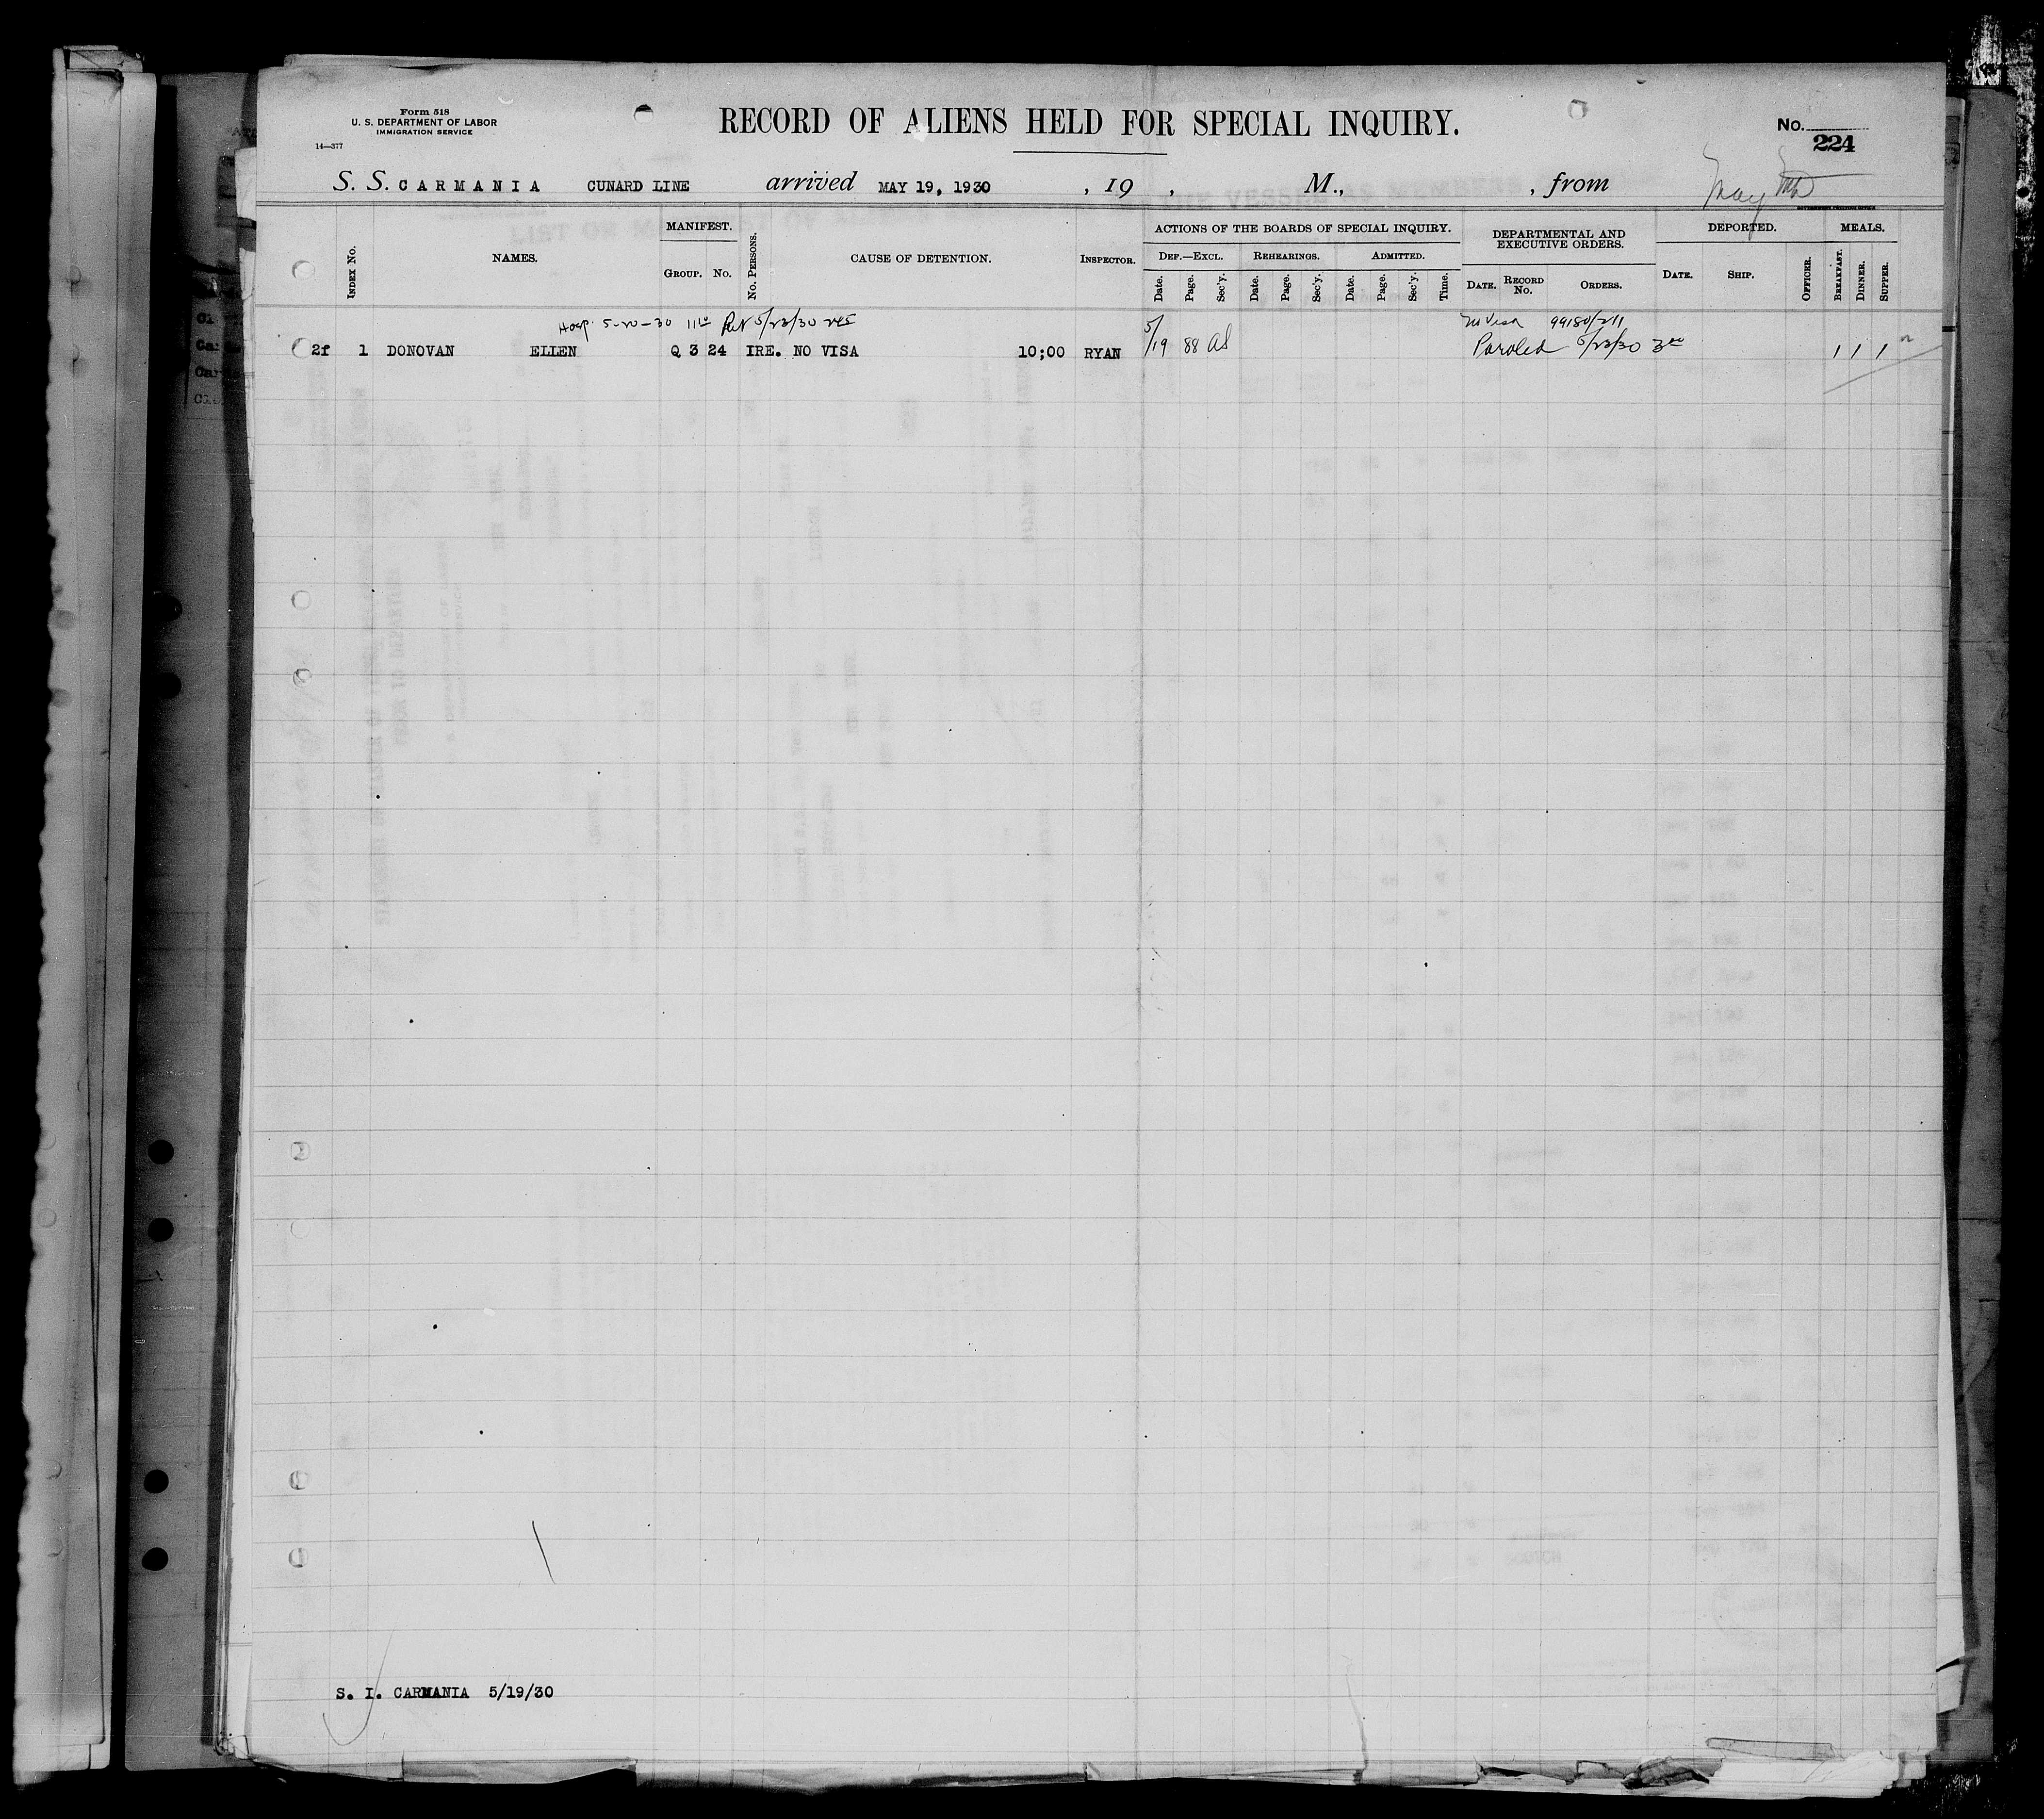 Form 518
U. S. DEPARTMENT OF LABOR
IMMIGRATION SERVICE
14—377
RECORD OF ALIENS HELD FOR SPECIAL INQUIRY.
No.
224
S. S. CARMANIA CUNARD LINE arrived MAY 19, 1930 , 19 , M., , from
May
INDEX No.
NAMES.
MANIFEST.
GROUP. No.
No. PERSONS.
CAUSE OF DETENTION.
INSPECTOR.
ACTIONS OF THE BOARDS OF SPECIAL INQUIRY.
DEF.—EXCL. REHEARINGS. ADMITTED.
Date. Page. Sec'y. Date. Page. Sec'y. Date. Page. Sec'y. Time.
DEPARTMENTAL AND
EXECUTIVE ORDERS.
DATE. RECORD No. ORDERS.
DEPORTED.
DATE. SHIP. OFFICER.
MEALS.
BREAKFAST. DINNER. SUPPER.
Hosp. 5-20-30 11 10 Ret 5/23/30 245 5/ no Visa 99180/211
2f 1 DONOVAN ELLEN Q 3 24 IRE. NO VISA 10;00 RYAN /19 88 as Paroled 5/23/30 3 00 1 1 1
S. I. CARMANIA 5/19/30